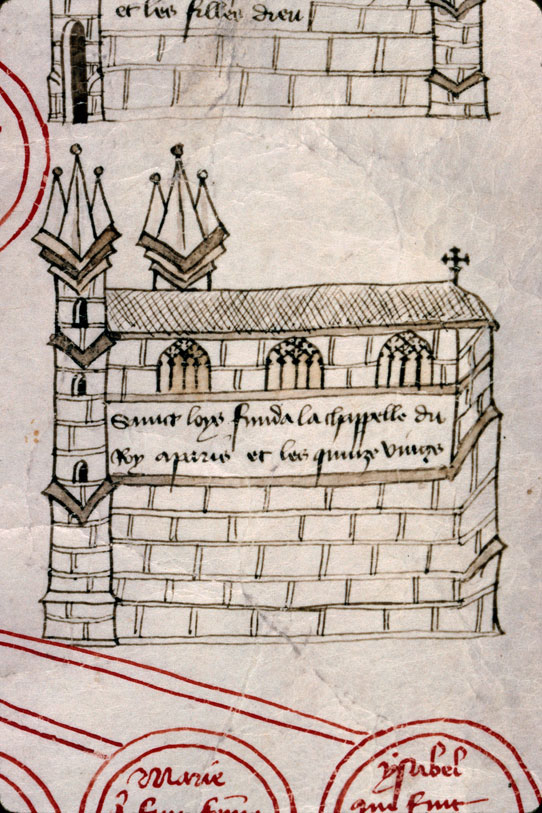 et les filles dieu
Sainct loys funda la chappelle du
Roy a paris et les quinze vings
Marie
ysabel
qui fuit